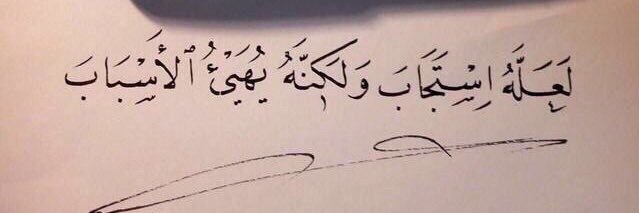 لَعَلَّهُ اِسْتَجَابَ وَلَكِنَّهُ يُهَيِّئُ ٱلأَسْبَابَ